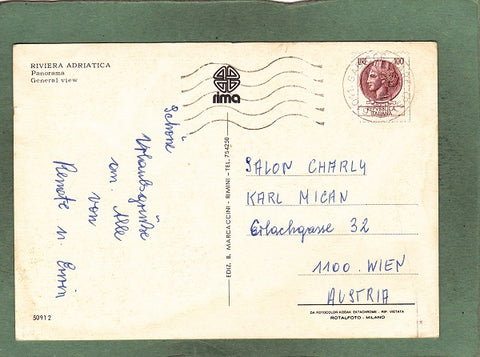 RIVIERA ADRIATICA
Panorama
General view
rima
LIRE 100
REPVBBLICA
ITALIANA
Schöne
Urlaubsgrüße
an Alle
von
Renate u. Erwin
EDIZ. B. MARCACCINI - RIMINI - TEL. 754250
SALON CHARLY
KARL MICAN
Erlachgasse 32
1100 . WIEN
AUSTRIA
50912
DA FOTOCOLOR KODAK EKTACHROME - RIP. VIETATA
ROTALFOTO - MILANO